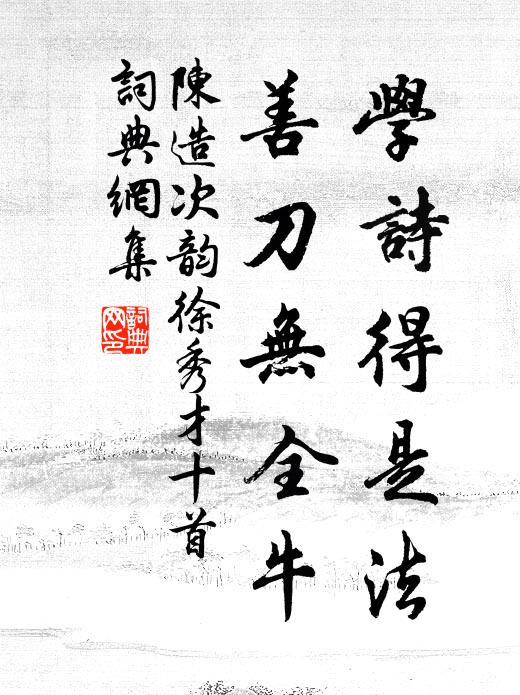 學詩得是法
善刀無全牛
陳造次韵徐秀才十首
詞典網集
詞典
网印